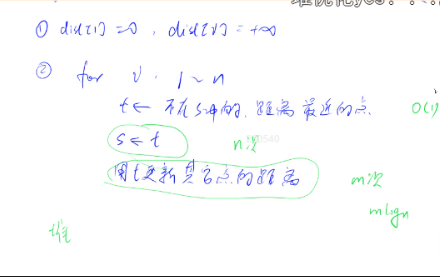 ① dist[1]=0, dist[v]=+∞
② for v: 1~n
t ← 不在s中的, 距离最近的点 O(1)
s ← t n次
用t更新其它点的距离 m次
mlogn